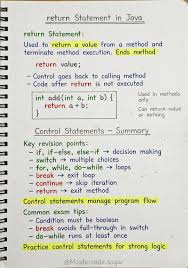 return Statement in Java
return Statement:
Used to return a value from a method and
terminate method execution. Ends method
return value;
- Control goes back to calling method
- Code after return is not executed
int add(int a, int b) {
return a + b;
}
Used in methods
only
Can return value
or nothing
Control Statements - Summary
Key revision points:
- if, if-else, else-if → decision making
- switch → multiple choices
- for, while, do-while → loops
- break → exit loop
- continue → skip iteration
- return → exit method
Control statements manage program flow
Common exam tips:
- Condition must be boolean
- break avoids fall-through in switch
- do-while runs at least once
Practice control statements for strong logic